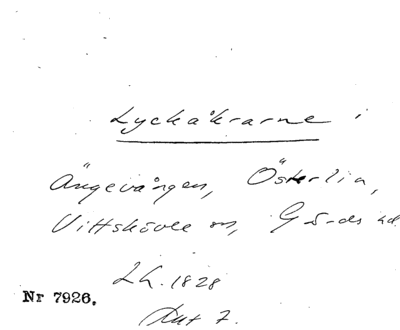 Lyckåkrarne i
Ängevången, Österlia,
Vittskövle sn, Gärds hd
Lh. 1828
Akt 7.
Nr 7926.